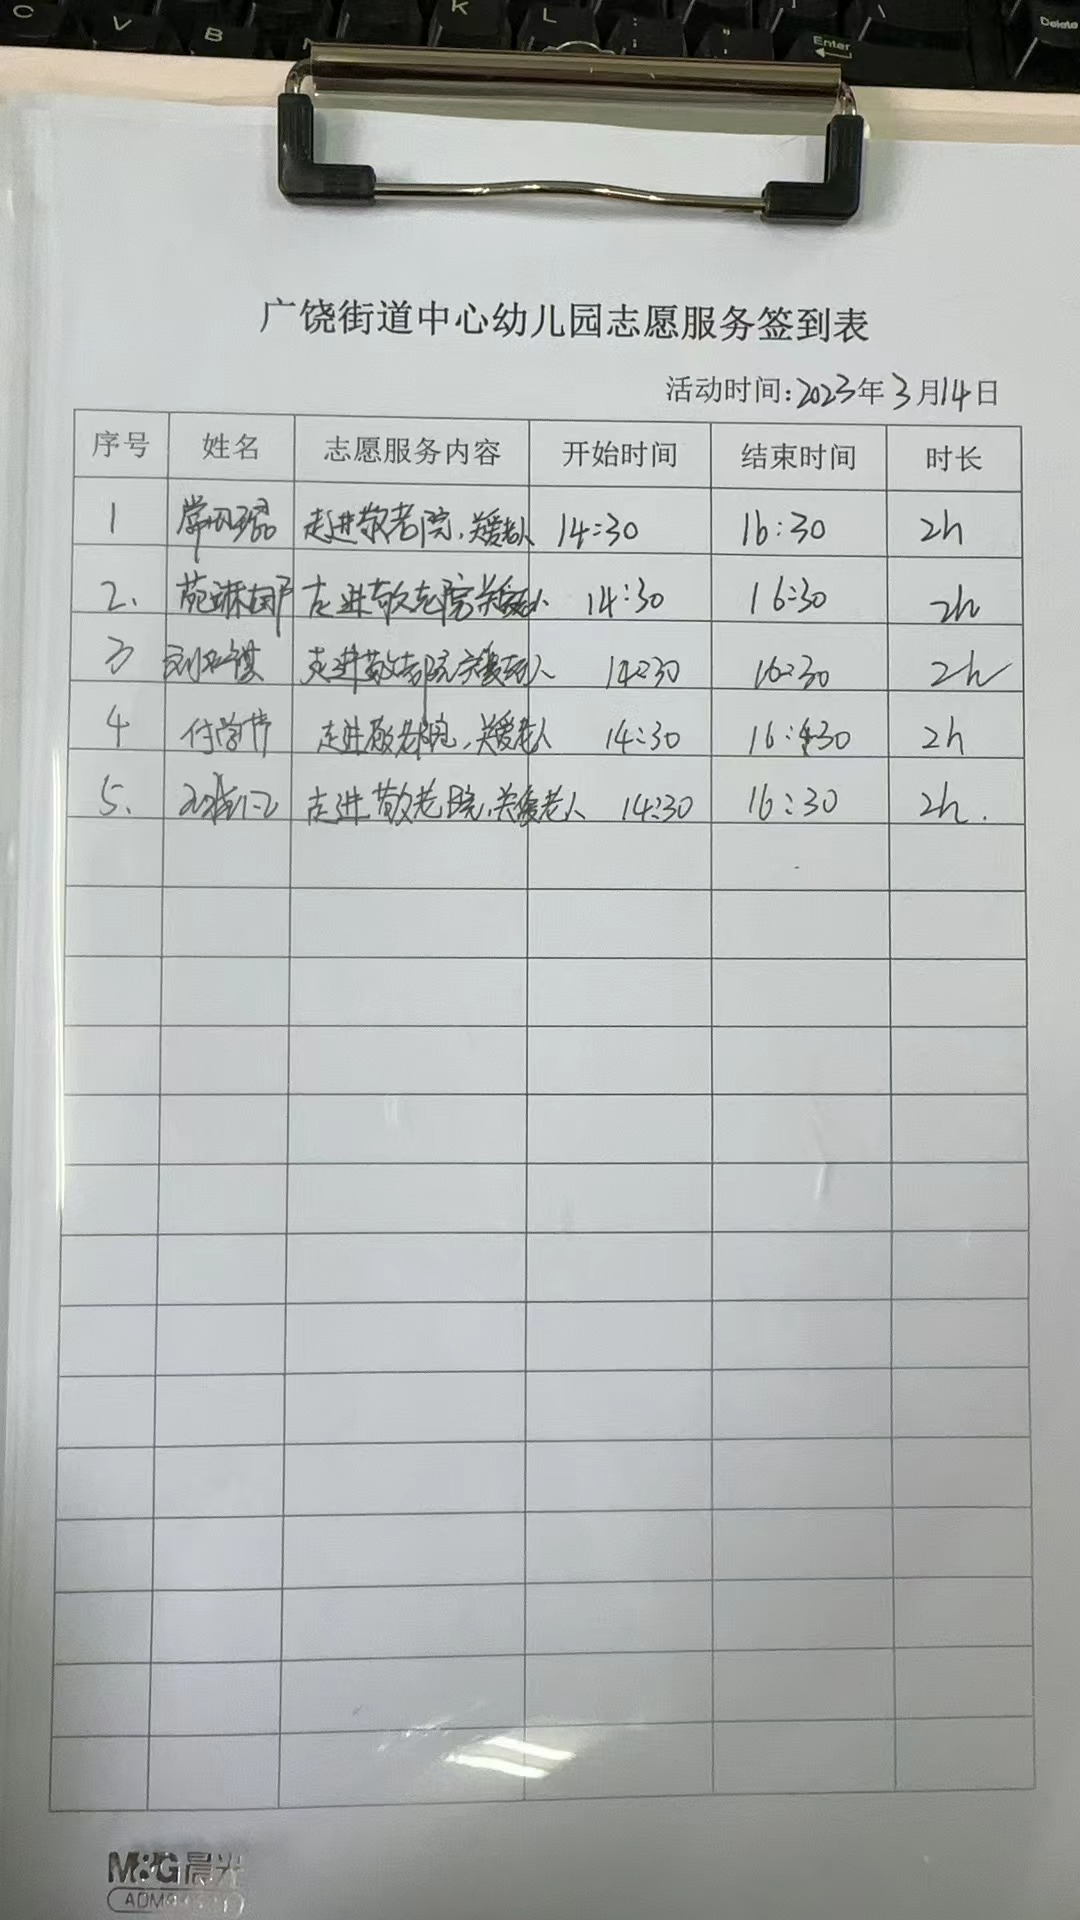 C V B K L : ; " ' \ Enter Delete
广饶街道中心幼儿园志愿服务签到表
活动时间:2023年3月14日
序号 姓名 志愿服务内容 开始时间 结束时间 时长
1 走进敬老院,关爱老人 14:30 16:30 2h
2. 走进敬老院关爱老人 14:30 16:30 2h
3 走进敬老院关爱老人 14:30 16:30 2h
4 走进敬老院,关爱老人 14:30 16:30 2h
5. 走进敬老院,关爱老人 14:30 16:30 2h.
M&G晨光